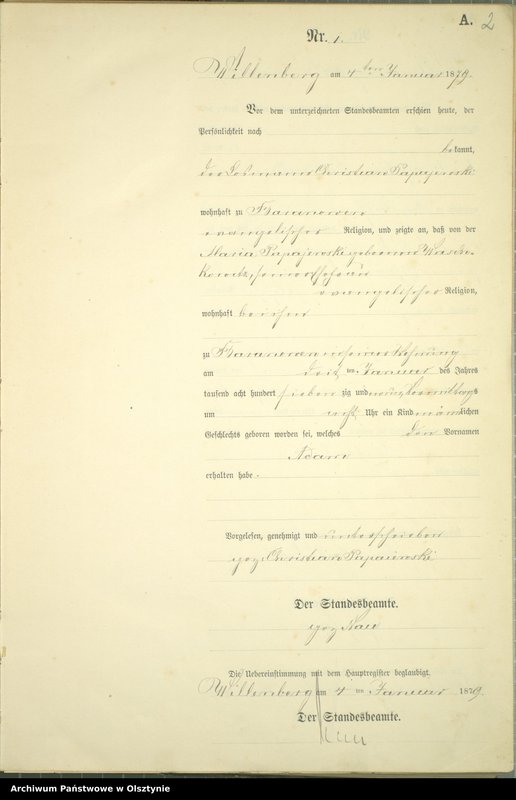 A. 2
Nr. 1.
Willenberg am 4ten Januar 1879.
Vor dem unterzeichneten Standesbeamten erschien heute, der
Persönlichkeit nach
bekannt,
der Losmann Christian Papajewski
wohnhaft zu Baranowen
evangelischer Religion, und zeigte an, daß von der
Maria Papajewski geborenen
seiner Ehefrau
evangelischer Religion,
wohnhaft bei ihm
zu Baranowen in seiner Wohnung
am drei ten Januar des Jahres
tausend acht hundert sieben zig und neun, Vormittags
um acht Uhr ein Kind männlichen
Geschlechts geboren worden sei, welches den Vornamen
Adam
erhalten habe.
Vorgelesen, genehmigt und unterschrieben
gez. Christian Papajewski
Der Standesbeamte.
gez.
Die Uebereinstimmung mit dem Hauptregister beglaubigt.
Willenberg am 4 ten Januar 1879.
Der Standesbeamte.
Archiwum Państwowe w Olsztynie